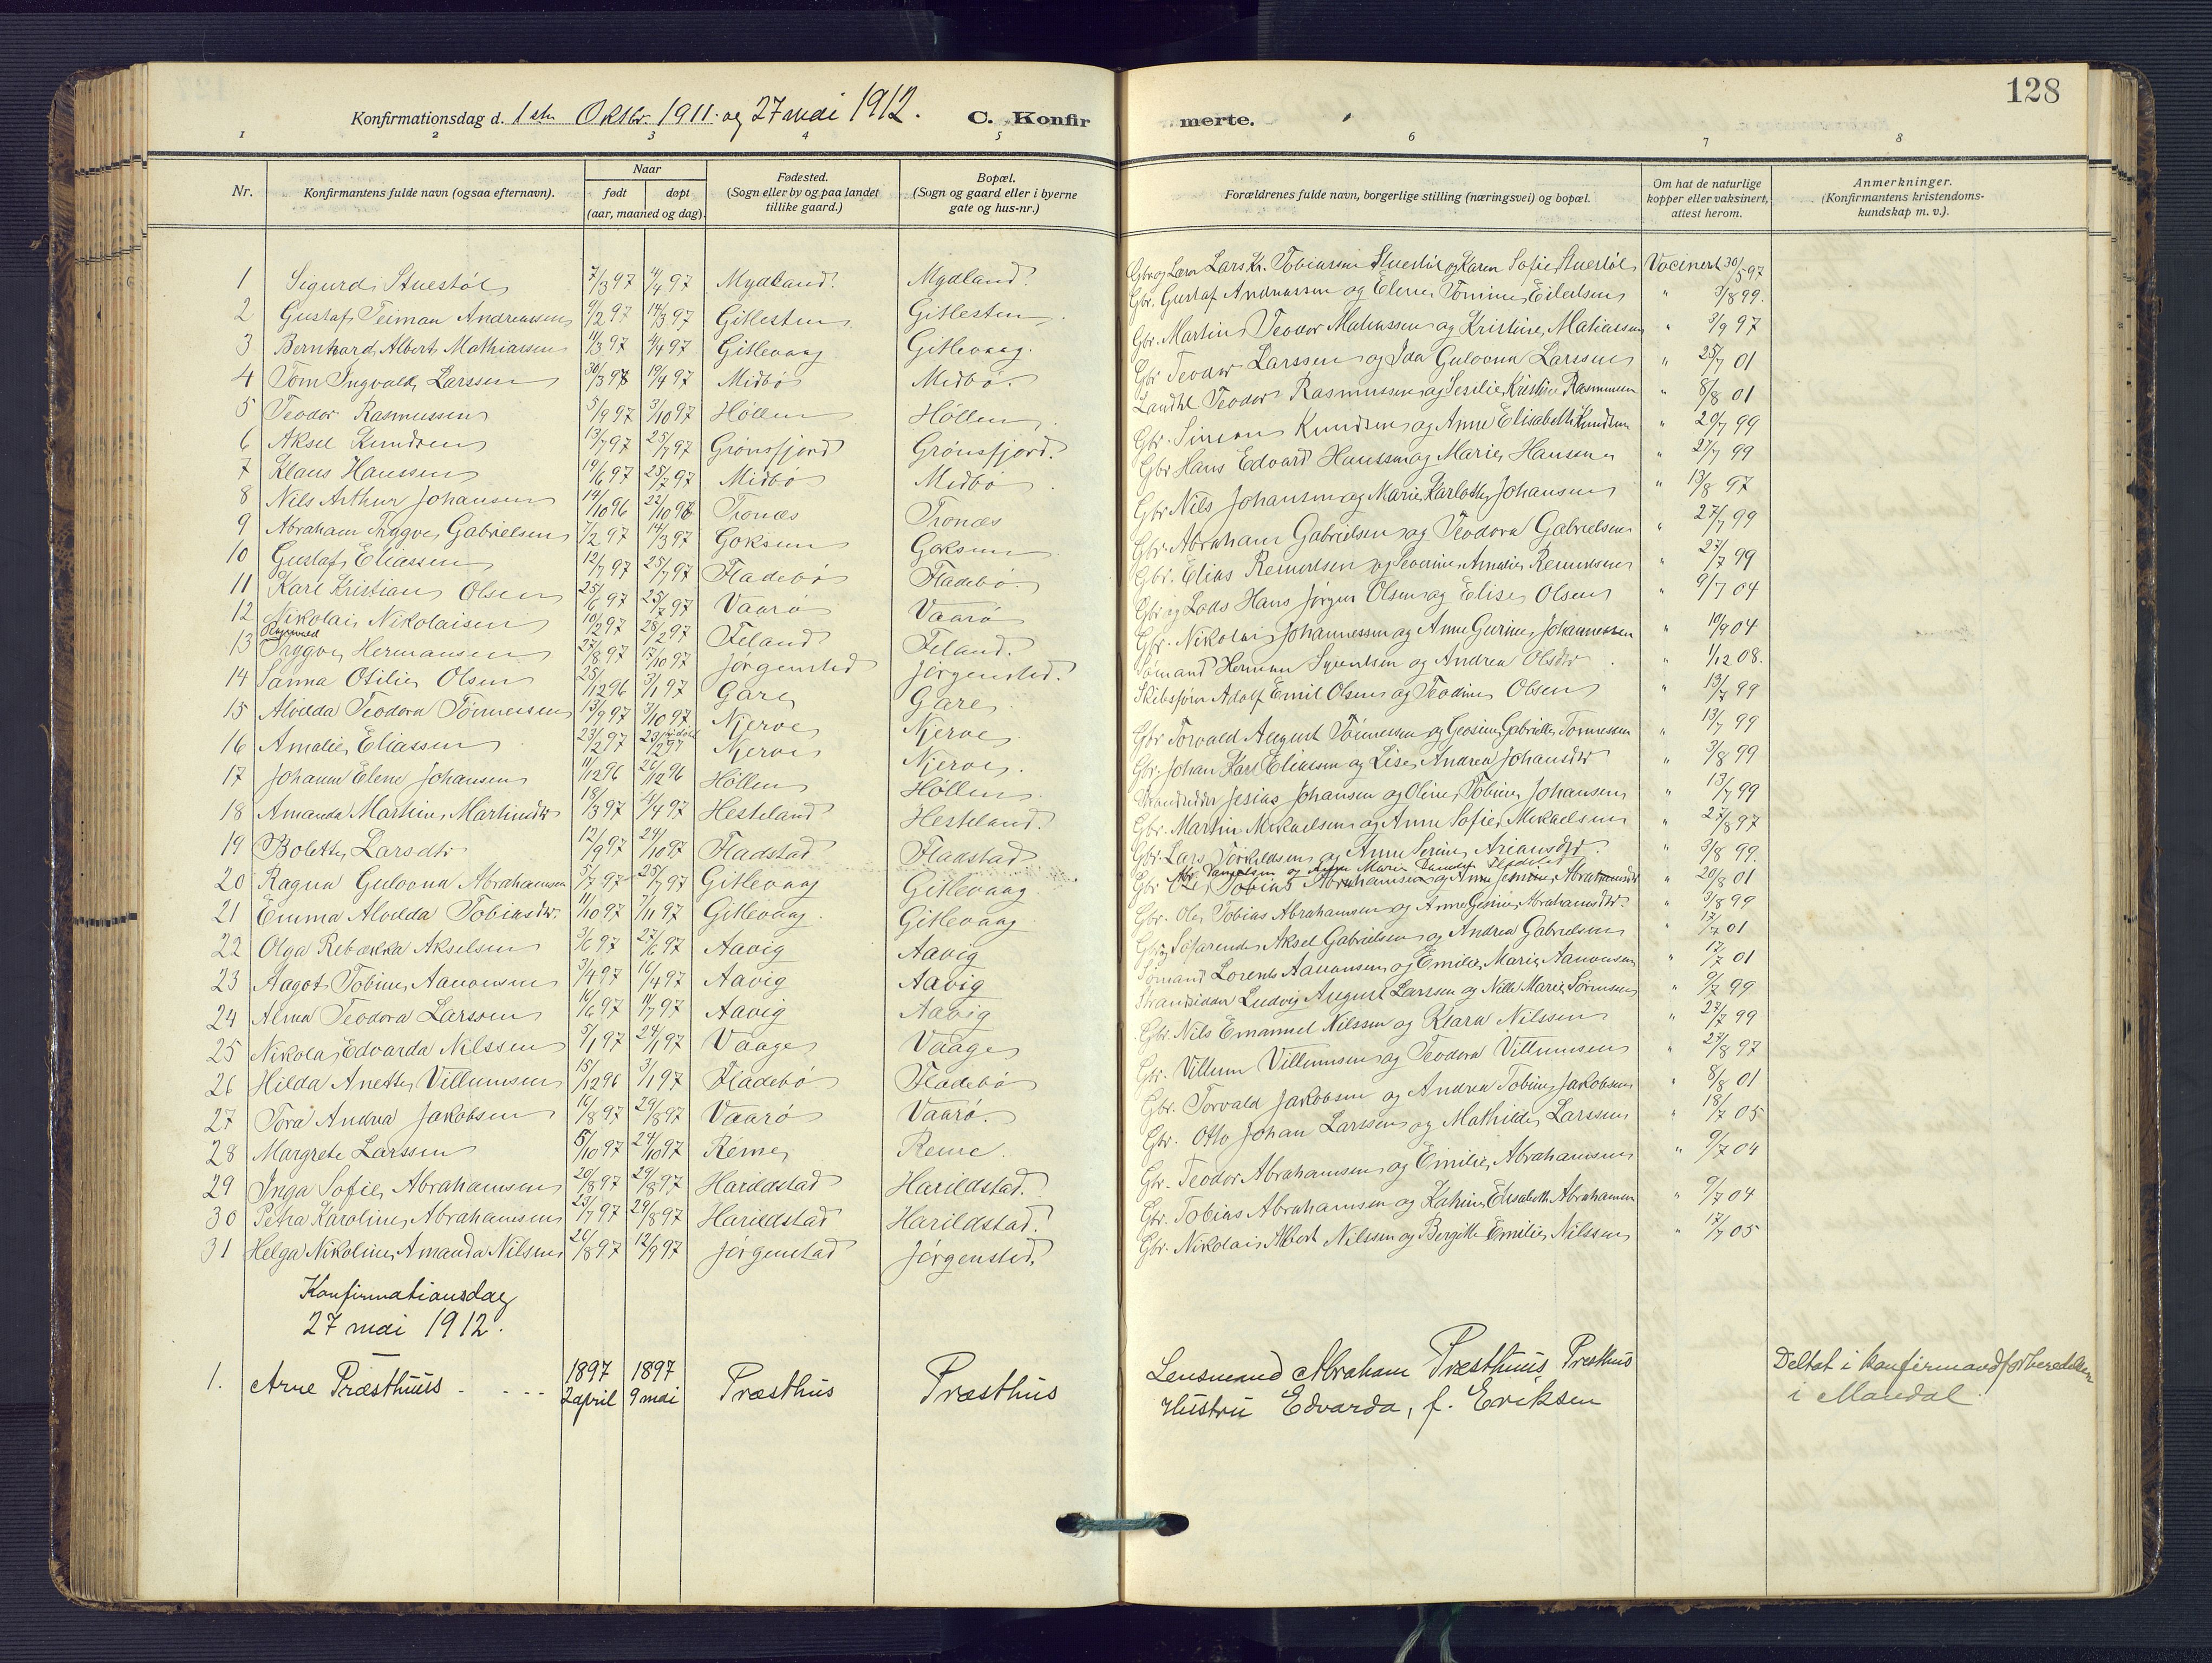 128
Konfirmationsdag d. 1ste Oktbr. 1911. og 27 mai 1912.
C. Konfirmerte.
1 2 3 4 5 6 7 8
Nr. Konfirmantens fulde navn (ogsaa efternavn). Naar født døpt (aar, maaned og dag). Fødested. (Sogn eller by og paa landet tillike gaard.) Bopæl. (Sogn og gaard eller i byerne gate og hus-nr.) Forældrenes fulde navn, borgerlige stilling (næringsvei) og bopæl. Om hat de naturlige kopper eller vaksinert, attest herom. Anmerkninger. (Konfirmantens kristendomskundskap m. v.).
1 Sigurd Stuestøl 7/3 97 4/4 97 Mydland Mydland Gbr og Lærer Lars Kr. Tobiassen Stuestøl og Karen Sofie Stuestøl Vacinerd 30/5 97
2 Gustaf Teiman Andreassen 9/2 97 14/3 97 Gitlesten Gitlesten Gbr. Gustaf Andreassen og Elene Tomine Eilertsen " 3/8 99.
3 Bernhard Albert Mathiassen 11/3 97 4/4 97 Gitlevaag Gitlevaag. Gbr. Martin Teodor Mathiassen og Kristine Mathiassen " 3/9 97
4 Tom Ingvald Larssen 30/3 97 19/4 97 Midbø Midbø. Gbr Teodor Larssen og Ida Gulovna Larssen " 25/7 01
5 Teodor Rasmussen 5/9 97 3/10 97 Høllen Høllen Landhl Teodor Rasmussen og Sesilie Kristine Rasmussen " 8/8 01
6 Aksel Knudsen 13/7 97 25/7 97 Grønsfjord Grønsfjord. Gbr. Simon Knudsen og Anne Elisabeth Knudsen " 20/7 99
7 Klaus Hanssen 19/6 97 25/7 97 Midbø Midbø Gbr Hans Edvard Hanssen og Marie Hansen " 27/7 99
8 Nils Arthur Johansen 14/10 96 22/10 96 Tronæs Tronæs Gbr Nils Johansen og Marie Karlotte Johansen " 13/8 97
9 Abraham Trygve Gabrielsen 7/2 97 14/3 97 Goksum Goksum Gbr. Abraham Gabrielsen og Teodora Gabrielsen " 27/7 99
10 Gustaf Eliassen 12/7 97 25/7 97 Fladebø Fladebø. Gbr. Elias Reinertsen og Severine Amalie Reinertsen 27/7 99
11 Karl Kristian Olsen 25/6 97 25/7 97 Vaarø Vaarø Gbr og Lods Hans Jørgen Olsen og Elise Olsen " 9/7 04
12 Nikolai Nikolaisen 10/2 97 28/2 97 Feland Feland. Gbr. Nikolai Johannessen og Anne Gurine Johannessen " 10/9 04
13 Trygve Hermansen 27/8 97 17/10 97 Jørgensted Jørgensted. Sømand Herman Syvertsen og Andrea Olsdtr. " 1/12 08.
14 Sanna Otilie Olsen 25/12 96 3/1 97 Gare Gare Skibsførn Adolf Emil Olsen og Teodine Olsen " 13/7 99
15 Alvilda Teodora Tønnessen 13/9 97 3/10 97 Njerve Njerve Gbr Torvald August Tønnessen og Gesine Gabrielle Tønnessen " 13/7 99
16 Amalie Eliassen 23/2 97 23/2 97 Njerve Njerve. Gbr. Johan Karl Eliassen og Lise Andrea Johansdtr " 3/8 99
17 Johanne Elene Johansen 11/12 96 26/12 96 Høllen Høllen Strandsidder Jesias Johansen og Oline Tobine Johansen " 13/7 99
18 Amanda Martine Martinsdtr 18/3 97 4/4 97 Hesteland Hesteland. Gbr. Martin Mekaelsen og Anne Sofie Mekaelsen " 27/8 97
19 Bolette Larsdtr 12/9 97 24/10 97 Fladstad Fladstad Gbr. Lars Torkildsen og Anne Serine Ariansdtr. " 3/8 99.
20 Ragna Gulovna Abrahamsen 5/7 97 25/7 97 Gitlevaag Gitlevaag Gbr Ole Tobias Abrahamsen og Anne Jesine Abrahamsdtr " 20/8 01
21 Emma Alvilda Tobiasdtr. 11/10 97 7/11 97 Gitlevaag Gitlevaag Gbr. Ole Tobias Abrahamsen og Anne Gesine Abrahamsdtr. " 3/8 99
22 Olga Rebækka Akselsen 3/6 97 27/6 97 Aavig Aavig Gbr og Søfarende Aksel Gabrielsen og Andrea Gabrielsen " 17/7 01
23 Aagot Tobine Aanonsen 3/4 97 16/4 97 Aavig Aavig Sømand Lorents Aanonsen og Emilie Marie Aanonsen " 17/7 01
24 Alma Teodora Larssen 16/6 97 11/7 97 Aavig Aavig Strandsidder Ludvig August Larssen og Nille Marie Sørensen " 9/7 99
25 Nikola Edvarda Nilssen 5/1 97 24/1 97 Vaage Vaage Gbr. Nils Emanuel Nilssen og Klara Nilssen " 27/7 99
26 Hilda Anette Villumsen 15/12 96 3/1 97 Fladebø Fladebø Gbr. Villum Villumsen og Teodora Villumsen " 27/8 97
27 Tora Andrea Jakobsen 16/8 97 29/8 97 Vaarø Vaarø. Gbr. Torvald Jakobsen og Andrea Tobine Jakobsen " 8/8 01
28 Margrete Larssen 5/10 97 24/10 97 Reme Reme. Gbr. Otto Johan Larssen og Mathilde Larssen " 18/7 05
29 Inga Sofie Abrahamsen 20/8 97 29/8 97 Harildstad Harildstad. Gbr. Teodor Abrahamsen og Emilie Abrahamsen " 9/7 04
30 Petra Karoline Abrahamsen 23/7 97 29/8 97 Harildstad Harildstad. Gbr. Tobias Abrahamsen og Katrine Elisabeth Abrahamsen " 9/7 04
31 Helga Nikoline Amanda Nilsen 26/8 97 12/9 97 Jørgenstad Jørgensted. Gbr. Nikolai Albert Nilssen og Bergitte Emilie Nilssen " 17/7 05
Konfirmationsdag
27 mai 1912.
1. Arne Præsthuus 1897 2 april 1897 9 mai Præsthus Præsthus Lensmand Abraham Præsthuus, Præsthus
Hustru Edvarda, f. Eriksen
Deltat i konfirmandforberedelsen
i Mandal.